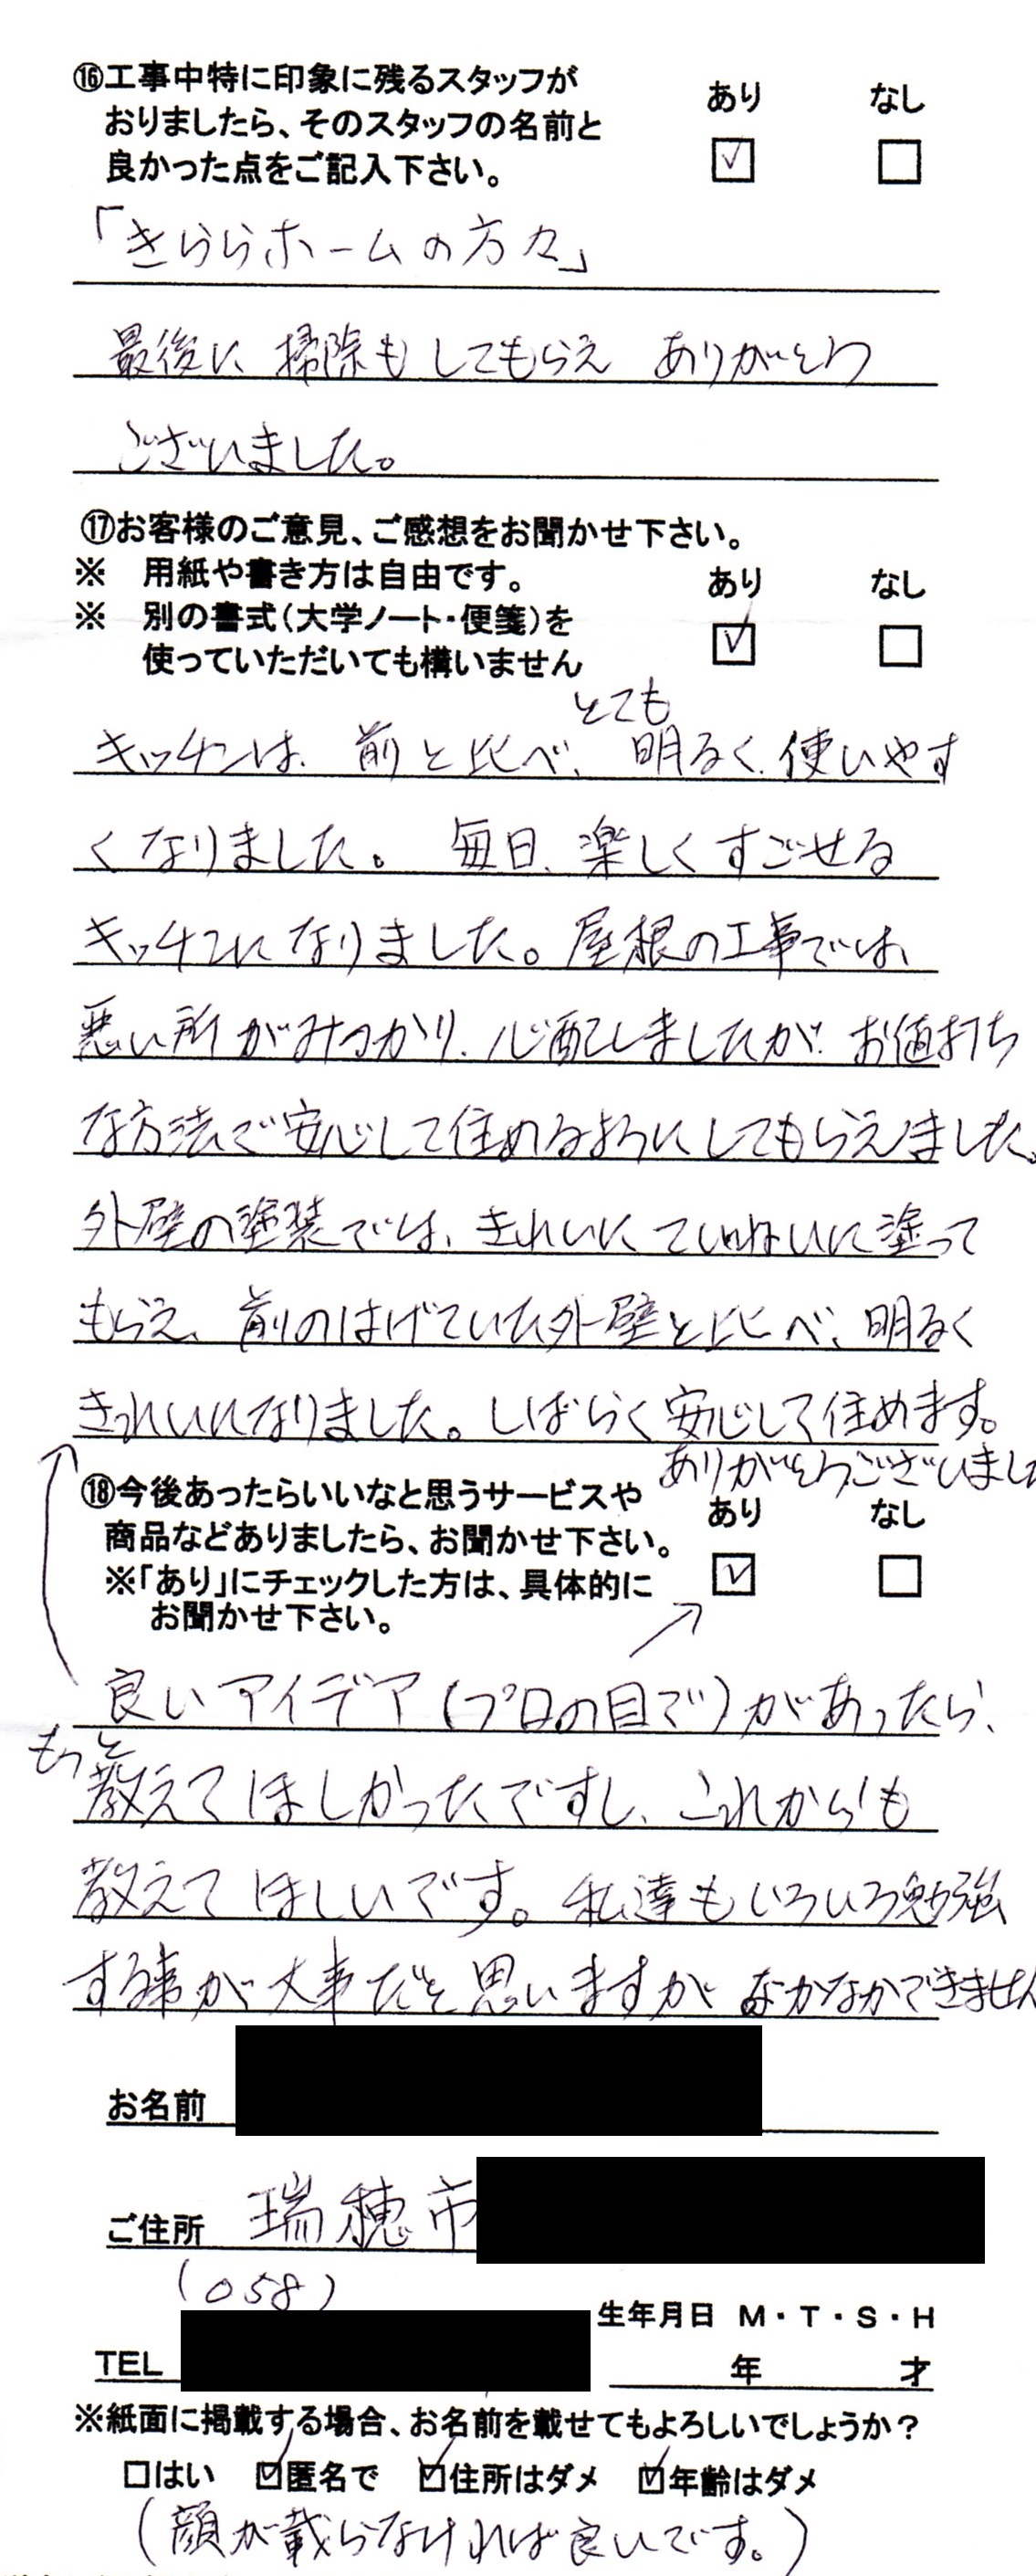 ⑯工事中特に印象に残るスタッフが
おりましたら、そのスタッフの名前と
良かった点をご記入下さい。
あり なし
「きららホームの方々」
最後に 掃除も してもらえ ありがとう
ございました。
⑰お客様のご意見、ご感想をお聞かせ下さい。
※ 用紙や書き方は自由です。
※ 別の書式(大学ノート・便箋)を
使っていただいても構いません
あり なし
とても
キッチンは、前と比べ、明るく、使いやす
くなりました。毎日、楽しくすごせる
キッチンになりました。屋根の工事では、
悪い所がみつかり、心配しましたが、お値打ち
な方法で安心して住めるようにしてもらえました。
外壁の塗装では、きれいにていねいに塗って
もらえ、前のはげていた外壁と比べ、明るく
きれいになりました。しばらく安心して住めます。
ありがとうございまし
⑱今後あったらいいなと思うサービスや
商品などありましたら、お聞かせ下さい。
※「あり」にチェックした方は、具体的に
お聞かせ下さい。
あり なし
良いアイデア(プロの目で)があったら、
もっと
教えてほしかったですし、これからも
教えてほしいです。私達もいろいろ勉強
する事が大事だと思いますが なかなかできません
お名前
ご住所 瑞穂市
(058)
TEL
生年月日 M・T・S・H
年 才
※紙面に掲載する場合、お名前を載せてもよろしいでしょうか?
□はい ☑匿名で ☑住所はダメ ☑年齢はダメ
(顔が載らなければ良いです。)